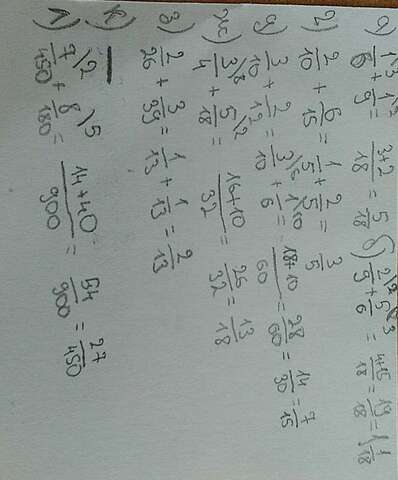 а) 1\3/6 + 1\2/9 = 3+2/18 = 5/18 б) 2\2/9 + 5\3/6 = 4+15/18 = 19/18 = 1 1/18
г) 2/10 + 6/15 = 1/5 + 2/5 = 3/5
д) 3/10 + 2/12 = 3\6/10 + 1\10/6 = 18+10/60 = 28/60 = 14/30 = 7/15
ж) 3\8/4 + 5\2/18 = 16+10/32 = 26/32 = 13/18
з) 2/26 + 3/39 = 1/13 + 1/13 = 2/13
к) —
л) 7\2/450 + 8\5/180 = 14+40/900 = 54/900 = 27/450